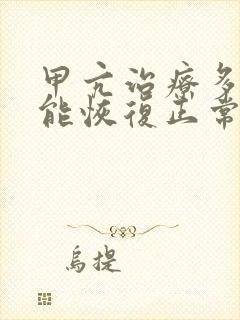 甲亢治療多
能恢復正常
烏提